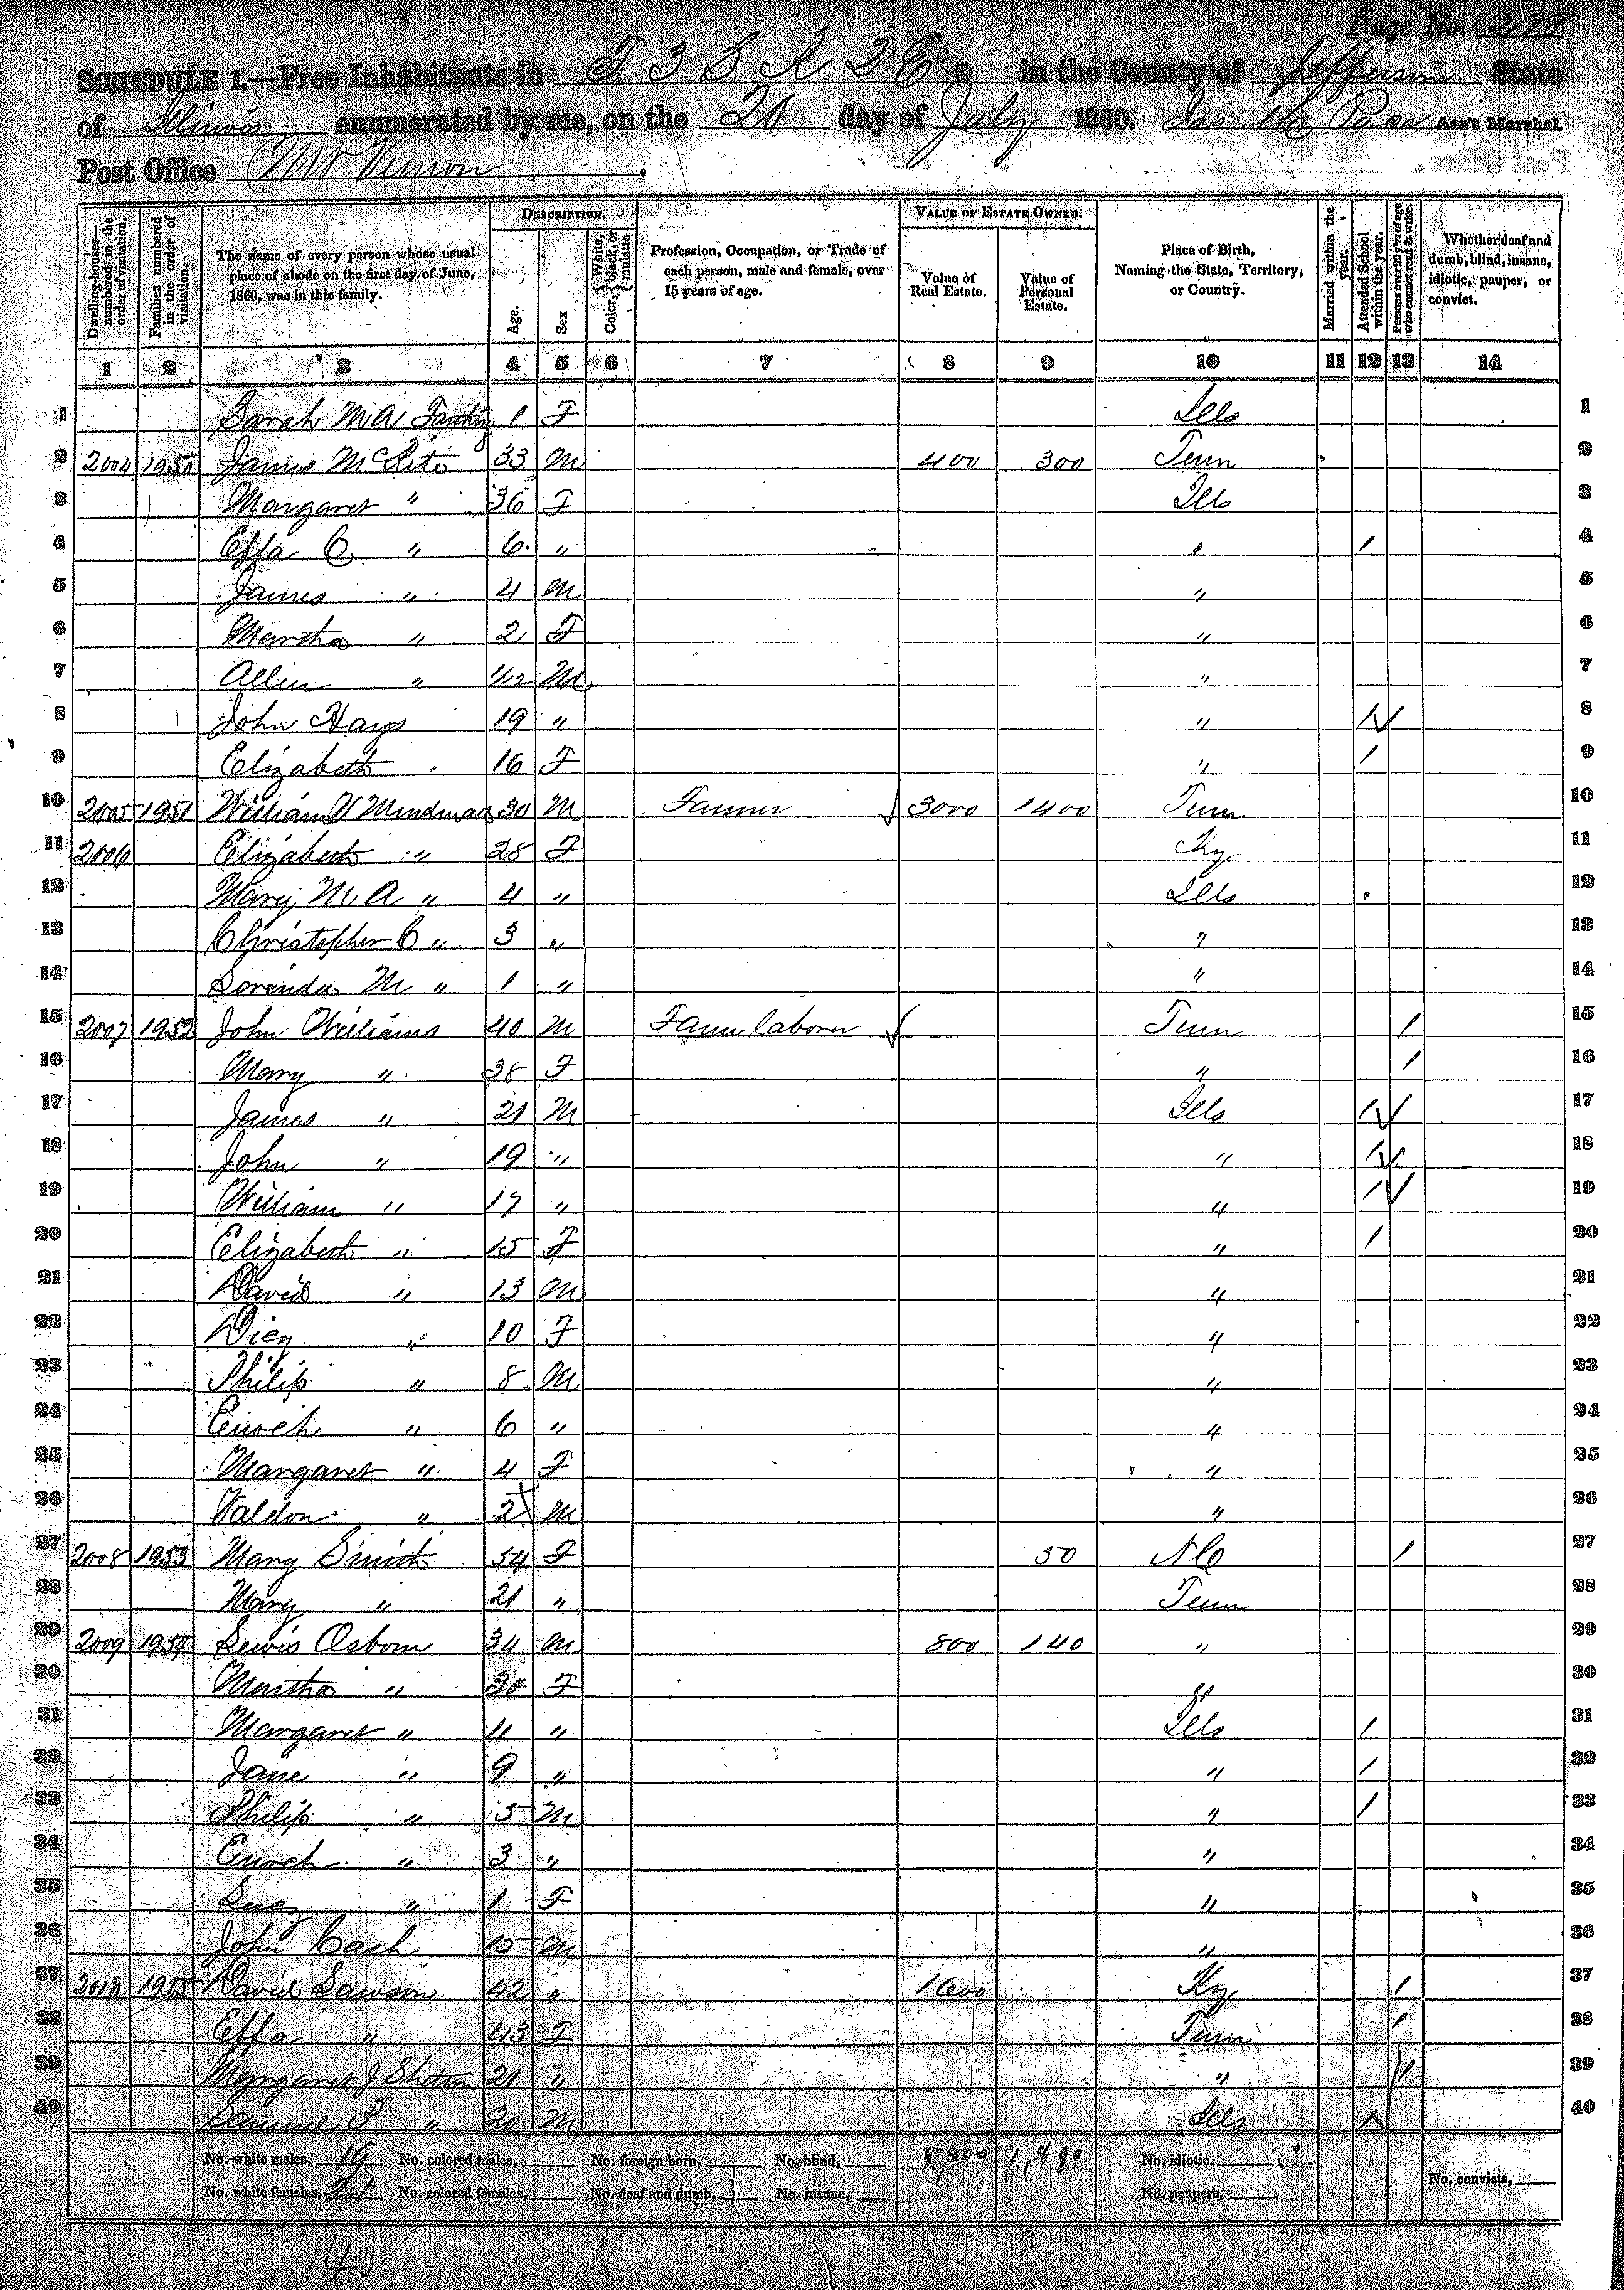 Page No. 278
SCHEDULE 1.—Free Inhabitants in T 3 S R 2 E in the County of Jefferson State
of Illinois enumerated by me, on the 20 day of July 1860. Pace Ass't Marshal
Post Office Mt Vernon.
Dwelling-houses—numbered in the order of visitation.
Families numbered in the order of visitation.
The name of every person whose usual place of abode on the first day of June, 1860, was in this family.
DESCRIPTION.
Age.
Sex
Color, White, black, or mulatto
Profession, Occupation, or Trade of each person, male and female, over 15 years of age.
VALUE OF ESTATE OWNED.
Value of Real Estate.
Value of Personal Estate.
Place of Birth, Naming the State, Territory, or Country.
Married within the year.
Attended School within the year.
Persons over 20 y'rs of age who cannot read & write.
Whether deaf and dumb, blind, insane, idiotic, pauper, or convict.
1 2 3 4 5 6 7 8 9 10 11 12 13 14
1 Sarah M A 1 F Ills 1
2 2004 1950 James 33 M 400 300 Tenn 2
3 Margaret " 36 F Ills 3
4 Effa C " 6 " " / 4
5 James " 4 M " 5
6 Martha " 2 F " 6
7 Allen " 1/12 M " 7
8 John Hays 19 " " / 8
9 Elizabeth 16 F " / 9
10 2005 1951 William 30 M Farmer √ 3000 1400 Tenn 10
11 2006 Elizabeth " 28 F Ky 11
12 Mary M. A " 4 " Ills 12
13 Christopher C " 3 " " 13
14 M " 1 " " 14
15 2007 1952 John Williams 40 M Farm laborer √ Tenn / 15
16 Mary " 38 F " / 16
17 James " 21 M Ills / √ 17
18 John " 19 " " / √ 18
19 William " 17 " " / √ 19
20 Elizabeth " 15 F " / 20
21 David " 13 M " 21
22 Dicy " 10 F " 22
23 Philip " 8 M " 23
24 Enoch " 6 " " 24
25 Margaret " 4 F " 25
26 " 2 M " 26
27 2008 1953 Mary Smith 54 F 50 NC / 27
28 Mary " 21 " Tenn 28
29 2009 1954 Lewis Osborn 34 M 800 140 " 29
30 Martha " 30 F " 30
31 Margaret " 11 " Ills / 31
32 Jane " 9 " " / 32
33 Philip " 5 M " / 33
34 Enoch " 3 " " 34
35 Lucy " 1 F " 35
36 John Cash 15 M " 36
37 2010 1955 David Lawson 42 " 1600 Ky / 37
38 Effa " 43 F Tenn / 38
39 Margaret J 21 " " / 39
40 Samuel " 20 M Ills / 40
No. white males, 19 No. colored males, No. foreign born, No. blind, 5,800 1,890 No. idiotic.
No. white females, 21 No. colored females, No. deaf and dumb, No. insane, No. paupers, No. convicts,
40